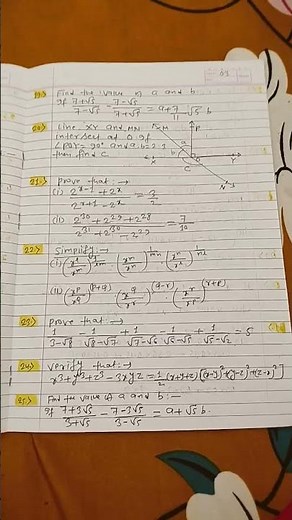 19.) Find the value of a and b
If (7+√5)/(7-√5) - (7-√5)/(7+√5) = a + 7/11 √5 b
20.) Line XY and MN
intersect at O. If
∠POY = 90° and a:b = 2:3
then find C
M P a b X O Y C N
21.) prove that :→
(i) (2^(x-1) + 2^x)/(2^(x+1) - 2^x) = 3/2
(ii) (2^30 + 2^29 + 2^28)/(2^31 + 2^30 - 2^29) = 7/10
22.) Simplify :→
(ii) (x^p/x^q)^(p+q) · (x^q/x^r)^(q-r) · (x^r/x^p)^(r+p)
23.) prove that :→
1/(3-√8) - 1/(√8-√7) + 1/(√7-√6) - 1/(√6-√5) + 1/(√5-2) = 5
24.) Verify that :→
x³+y³+z³-3xyz = 1/2 (x+y+z) [(x-y)²+(y-z)²+(z-x)²]
25.) Find the value of a and b :-
If (7+3√5)/(3+√5) - (7-3√5)/(3-√5) = a+√5 b.